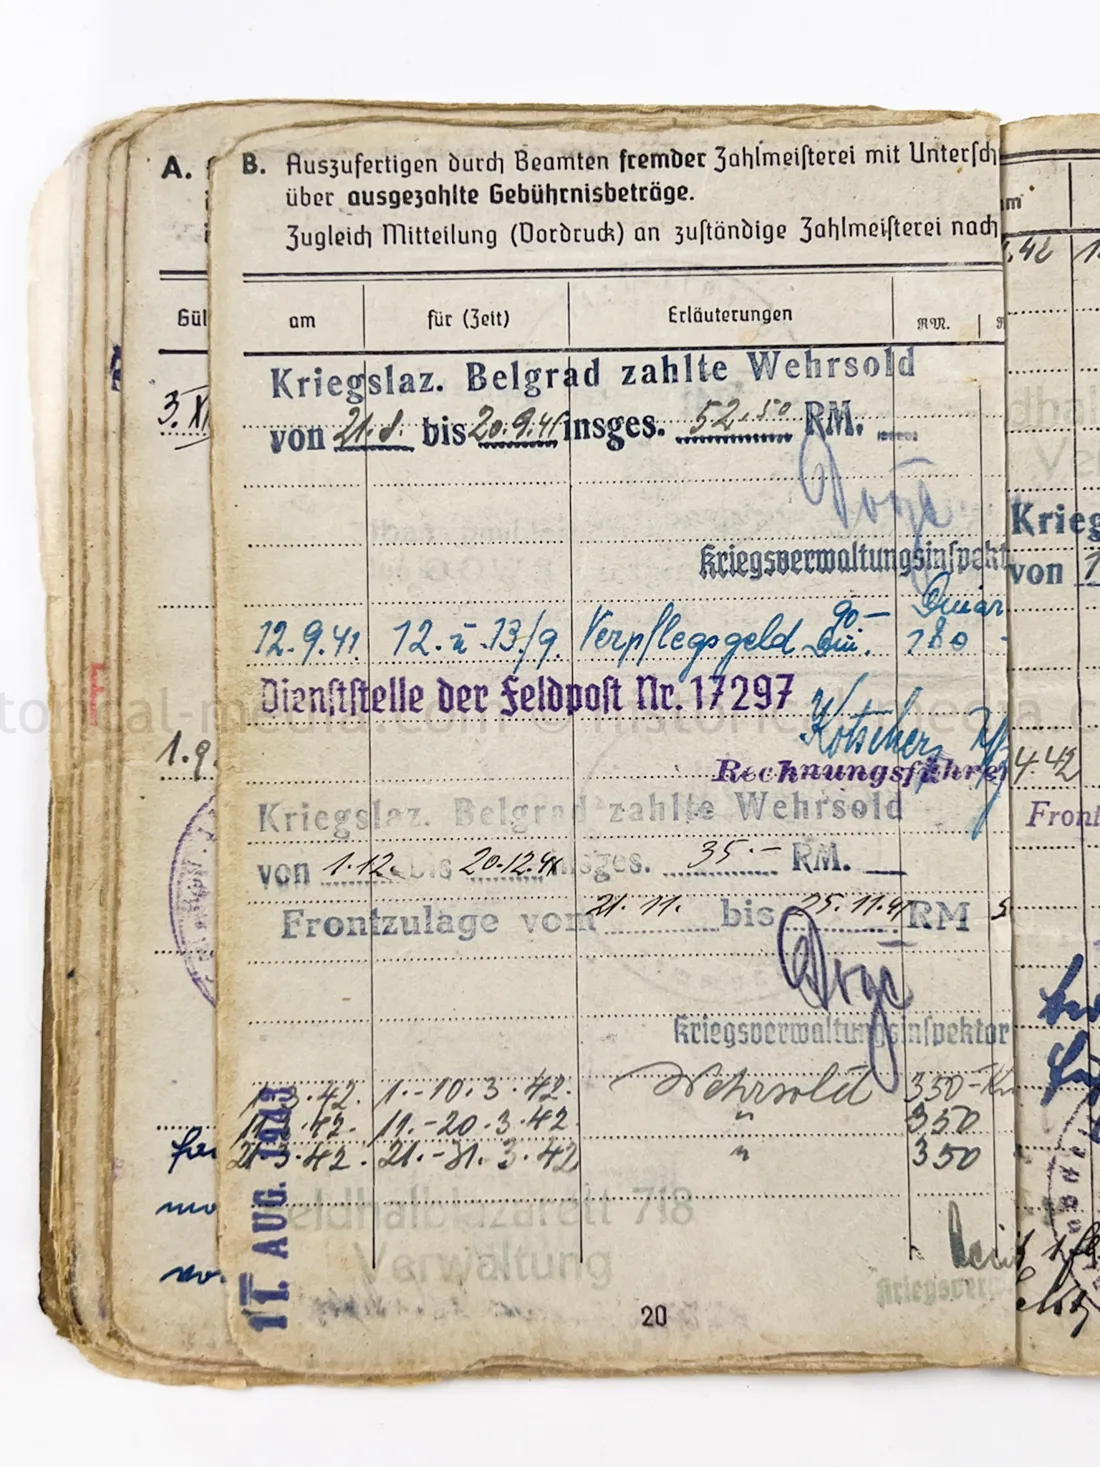 A.
B. Auszufertigen durch Beamten fremder Zahlmeisterei mit Untersch
über ausgezahlte Gebührnisbeträge.
Zugleich Mitteilung (Vordruck) an zuständige Zahlmeisterei nach
Gül
am für (Zeit) Erläuterungen RM.
Kriegslaz. Belgrad zahlte Wehrsold
3. XI
von 21.8. bis 20.9.41 insges. 52.50 RM.
Krieg
Kriegsverwaltungsinspekt
von 1
90—
12.9.41. 12. u. 13./9. Verpflegsgeld 180
Dienststelle der Feldpost Nr. 17297
historical-media.com © historical-media.com
1.9.
4.42
Rechnungsführer
Kriegslaz. Belgrad zahlte Wehrsold
Front
von 1.12. bis 20.12.41 insges. 35.— RM.
Frontzulage vom 21.11. bis 25.11.41 RM 5
Kriegsverwaltungsinspektor
1.3.42. 1.-10.3.42. Wehrsold 350-
11.3.42. 11.-20.3.42. " 350
21.3.42. 21.-31.3.42 " 350
11. AUG. 1943
Feldhalblazarett 718
Verwaltung
Kriegsverw
20